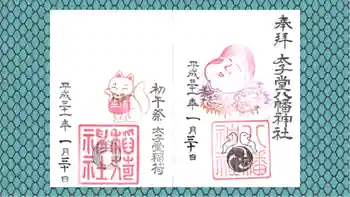 奉拝
太子堂八幡神社
平成三十一年
一月三十日
八幡
初午祭
太子堂稲荷
平成三十一年
一月三十日
稲荷
神社